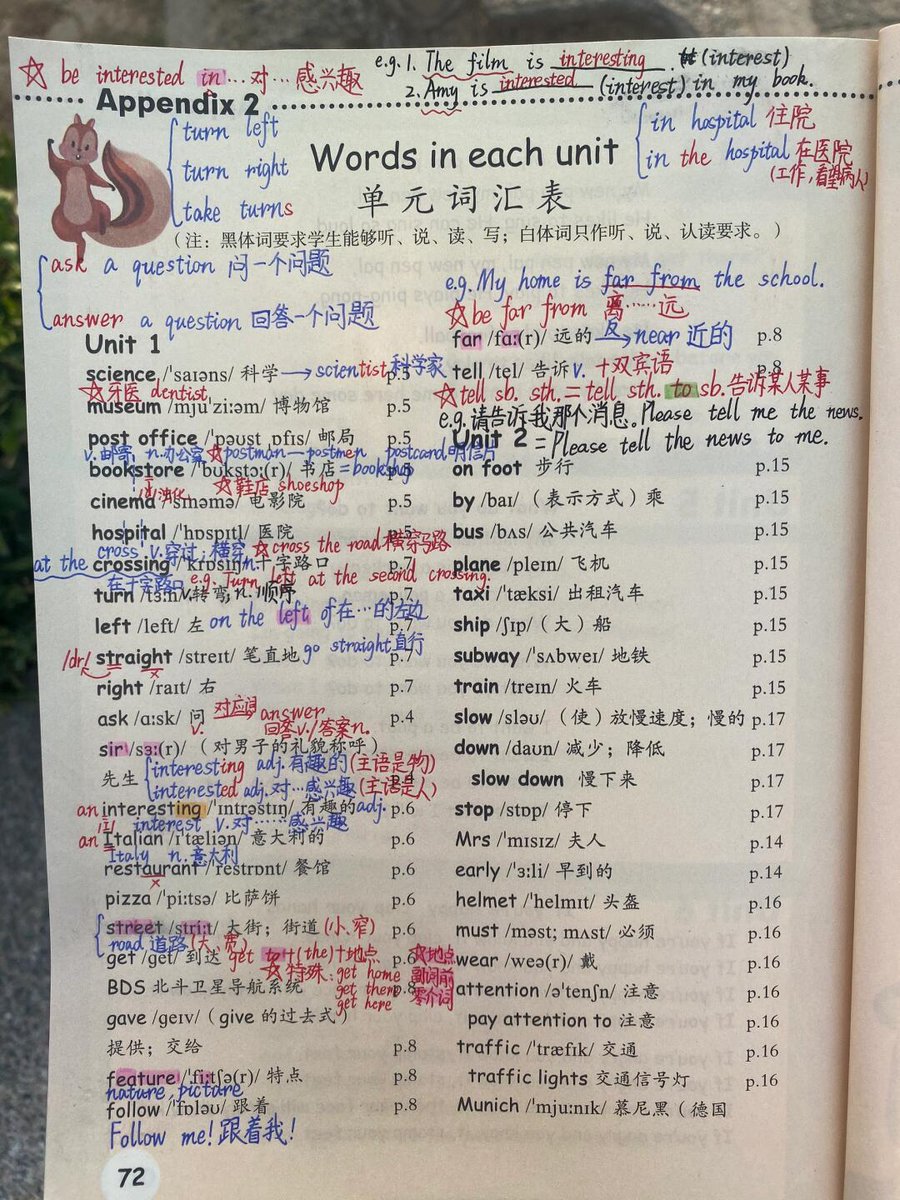 ☆ be interested in…对…感兴趣
e.g. 1. The film is interesting. (interest)
2. Amy is interested (interest) in my book.
Appendix 2
turn left
turn right
take turns
Words in each unit
单元词汇表
in hospital 住院
in the hospital 在医院
(工作,看望病人)
（注：黑体词要求学生能够听、说、读、写；白体词只作听、说、认读要求。）
ask a question 问一个问题
answer a question 回答一个问题
Unit 1
science /ˈsaɪəns/ 科学 → scientist 科学家 p.5
☆牙医 dentist
museum /mjuˈziːəm/ 博物馆 p.5
post office /ˈpəʊst ˌɒfɪs/ 邮局 p.5
v.邮寄 n.办公室 ☆postman—postmen postcard.明信片
bookstore /ˈbʊkstɔː(r)/ 书店 = bookshop
浊化 ☆鞋店 shoeshop
cinema /ˈsɪnəmə/ 电影院 p.5
hospital /ˈhɒspɪtl/ 医院 p.5
cross v.穿过；横穿 ☆cross the road 横穿马路
at the crossing /ˈkrɒsɪŋ/ n.十字路口 p.7
在十字路口 e.g. Turn left at the second crossing.
turn /tɜːn/ v.转弯; n.顺序
left /left/ 左 on the left of 在…的左边 p.7
/dr/ straight /streɪt/ 笔直地 go straight 直行 p.7
right /raɪt/ 右 p.7
ask /ɑːsk/ 问 v. 对应词 answer p.4
回答v./答案n.
sir /sɜː(r)/（对男子的礼貌称呼）
先生 p.4
interesting adj.有趣的(主语是物)
interested adj.对…感兴趣 (主语是人)
an interesting /ˈɪntrəstɪŋ/ 有趣的 adj. p.6
interest v.对……感兴趣
an Italian /ɪˈtæliən/ 意大利的 p.6
Italy n.意大利
restaurant /ˈrestrɒnt/ 餐馆 p.6
pizza /ˈpiːtsə/ 比萨饼 p.6
street /striːt/ 大街；街道 (小、窄) p.6
road 道路 (大、宽)
get /get/ 到达 get to+(the)+地点 p.6
☆特殊: get home
get there
get here
☆地点
副词前
零介词
BDS 北斗卫星导航系统 p.8
gave /geɪv/（give 的过去式）
提供；交给 p.8
feature /ˈfiːtʃə(r)/ 特点 p.8
nature, picture
follow /ˈfɒləʊ/ 跟着 p.8
Follow me! 跟着我!
72
e.g. My home is far from the school.
☆be far from 离……远
far /fɑː(r)/ 远的 反→ near 近的 p.8
tell /tel/ 告诉 v. +双宾语 p.8
☆tell sb. sth. = tell sth. to sb. 告诉某人某事
e.g. 请告诉我那个消息。Please tell me the news.
= Please tell the news to me.
Unit 2
on foot 步行 p.15
by /baɪ/（表示方式）乘 p.15
bus /bʌs/ 公共汽车 p.15
plane /pleɪn/ 飞机 p.15
taxi /ˈtæksi/ 出租汽车 p.15
ship /ʃɪp/（大）船 p.15
subway /ˈsʌbweɪ/ 地铁 p.15
train /treɪn/ 火车 p.15
slow /sləʊ/（使）放慢速度；慢的 p.17
down /daʊn/ 减少；降低 p.17
slow down 慢下来 p.17
stop /stɒp/ 停下 p.17
Mrs /ˈmɪsɪz/ 夫人 p.14
early /ˈɜːli/ 早到的 p.14
helmet /ˈhelmɪt/ 头盔 p.16
must /məst; mʌst/ 必须 p.16
wear /weə(r)/ 戴 p.16
attention /əˈtenʃn/ 注意 p.16
pay attention to 注意 p.16
traffic /ˈtræfɪk/ 交通 p.16
traffic lights 交通信号灯 p.16
Munich /ˈmjuːnɪk/ 慕尼黑（德国